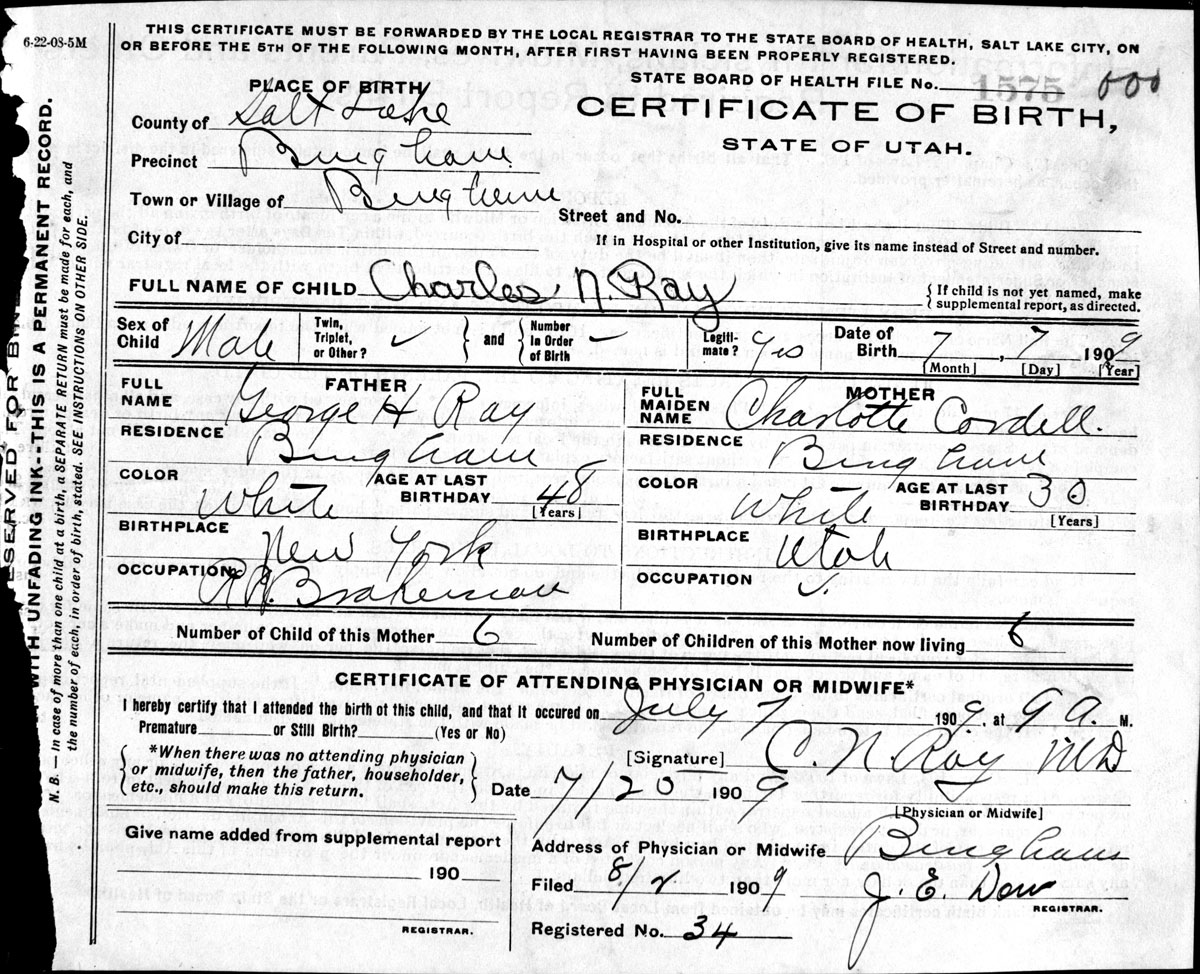 6-22-08-5M
THIS CERTIFICATE MUST BE FORWARDED BY THE LOCAL REGISTRAR TO THE STATE BOARD OF HEALTH, SALT LAKE CITY, ON
OR BEFORE THE 5TH OF THE FOLLOWING MONTH, AFTER FIRST HAVING BEEN PROPERLY REGISTERED.
STATE BOARD OF HEALTH FILE No. 1575
PLACE OF BIRTH
CERTIFICATE OF BIRTH,
STATE OF UTAH.
County of Salt Lake
Precinct Bingham
Town or Village of Bingham
Street and No.
City of
If in Hospital or other Institution, give its name instead of Street and number.
FULL NAME OF CHILD Charles N. Ray
{ If child is not yet named, make
supplemental report, as directed.
Sex of Child Male
Twin, Triplet, or Other? ✓ } and { Number in Order of Birth –
Legitimate? yes
Date of Birth 7, 7 1909
[Month] [Day] [Year]
FATHER
FULL NAME George H Ray
RESIDENCE Bingham
COLOR White
AGE AT LAST BIRTHDAY 48
[Years]
BIRTHPLACE New York
OCCUPATION R.R. Brakeman
MOTHER
FULL MAIDEN NAME Charlotte Cordell.
RESIDENCE Bingham
COLOR White
AGE AT LAST BIRTHDAY 30
[Years]
BIRTHPLACE Utah
OCCUPATION
Number of Child of this Mother 6 Number of Children of this Mother now living 6
CERTIFICATE OF ATTENDING PHYSICIAN OR MIDWIFE*
I hereby certify that I attended the birth of this child, and that it occured on July 7 1909, at 9 A. M.
Premature or Still Birth? (Yes or No)
{ *When there was no attending physician
or midwife, then the father, householder,
etc., should make this return. }
[Signature] C. N. Ray MD
Date 7/20 1909
[Physician or Midwife]
Give name added from supplemental report
190
REGISTRAR.
Address of Physician or Midwife Bingham
Filed 8/2, 1909 J. E. Dow
REGISTRAR.
Registered No. 34
WITH UNFADING INK--THIS IS A PERMANENT RECORD.
N. B. In case of more than one child at a birth, a SEPARATE RETURN must be made for each, and
the number of each, in order of birth, stated. SEE INSTRUCTIONS ON OTHER SIDE.